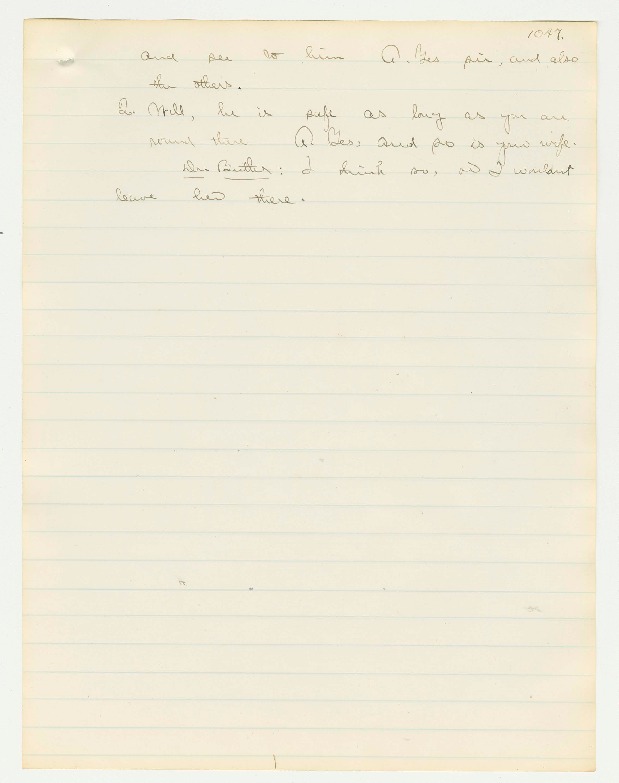 1047.
and see to him A. Yes sir, and also
the others.
Q. Well, he is safe as long as you are
round there A. Yes, and so is your wife.
Dr. Butler: I think so, or I wouldnt
leave her there.